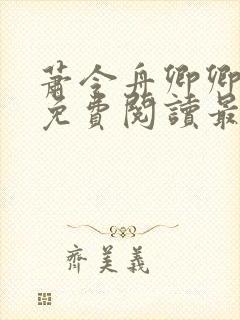 蕭令舟卿卿
免費閱讀最
齊美義